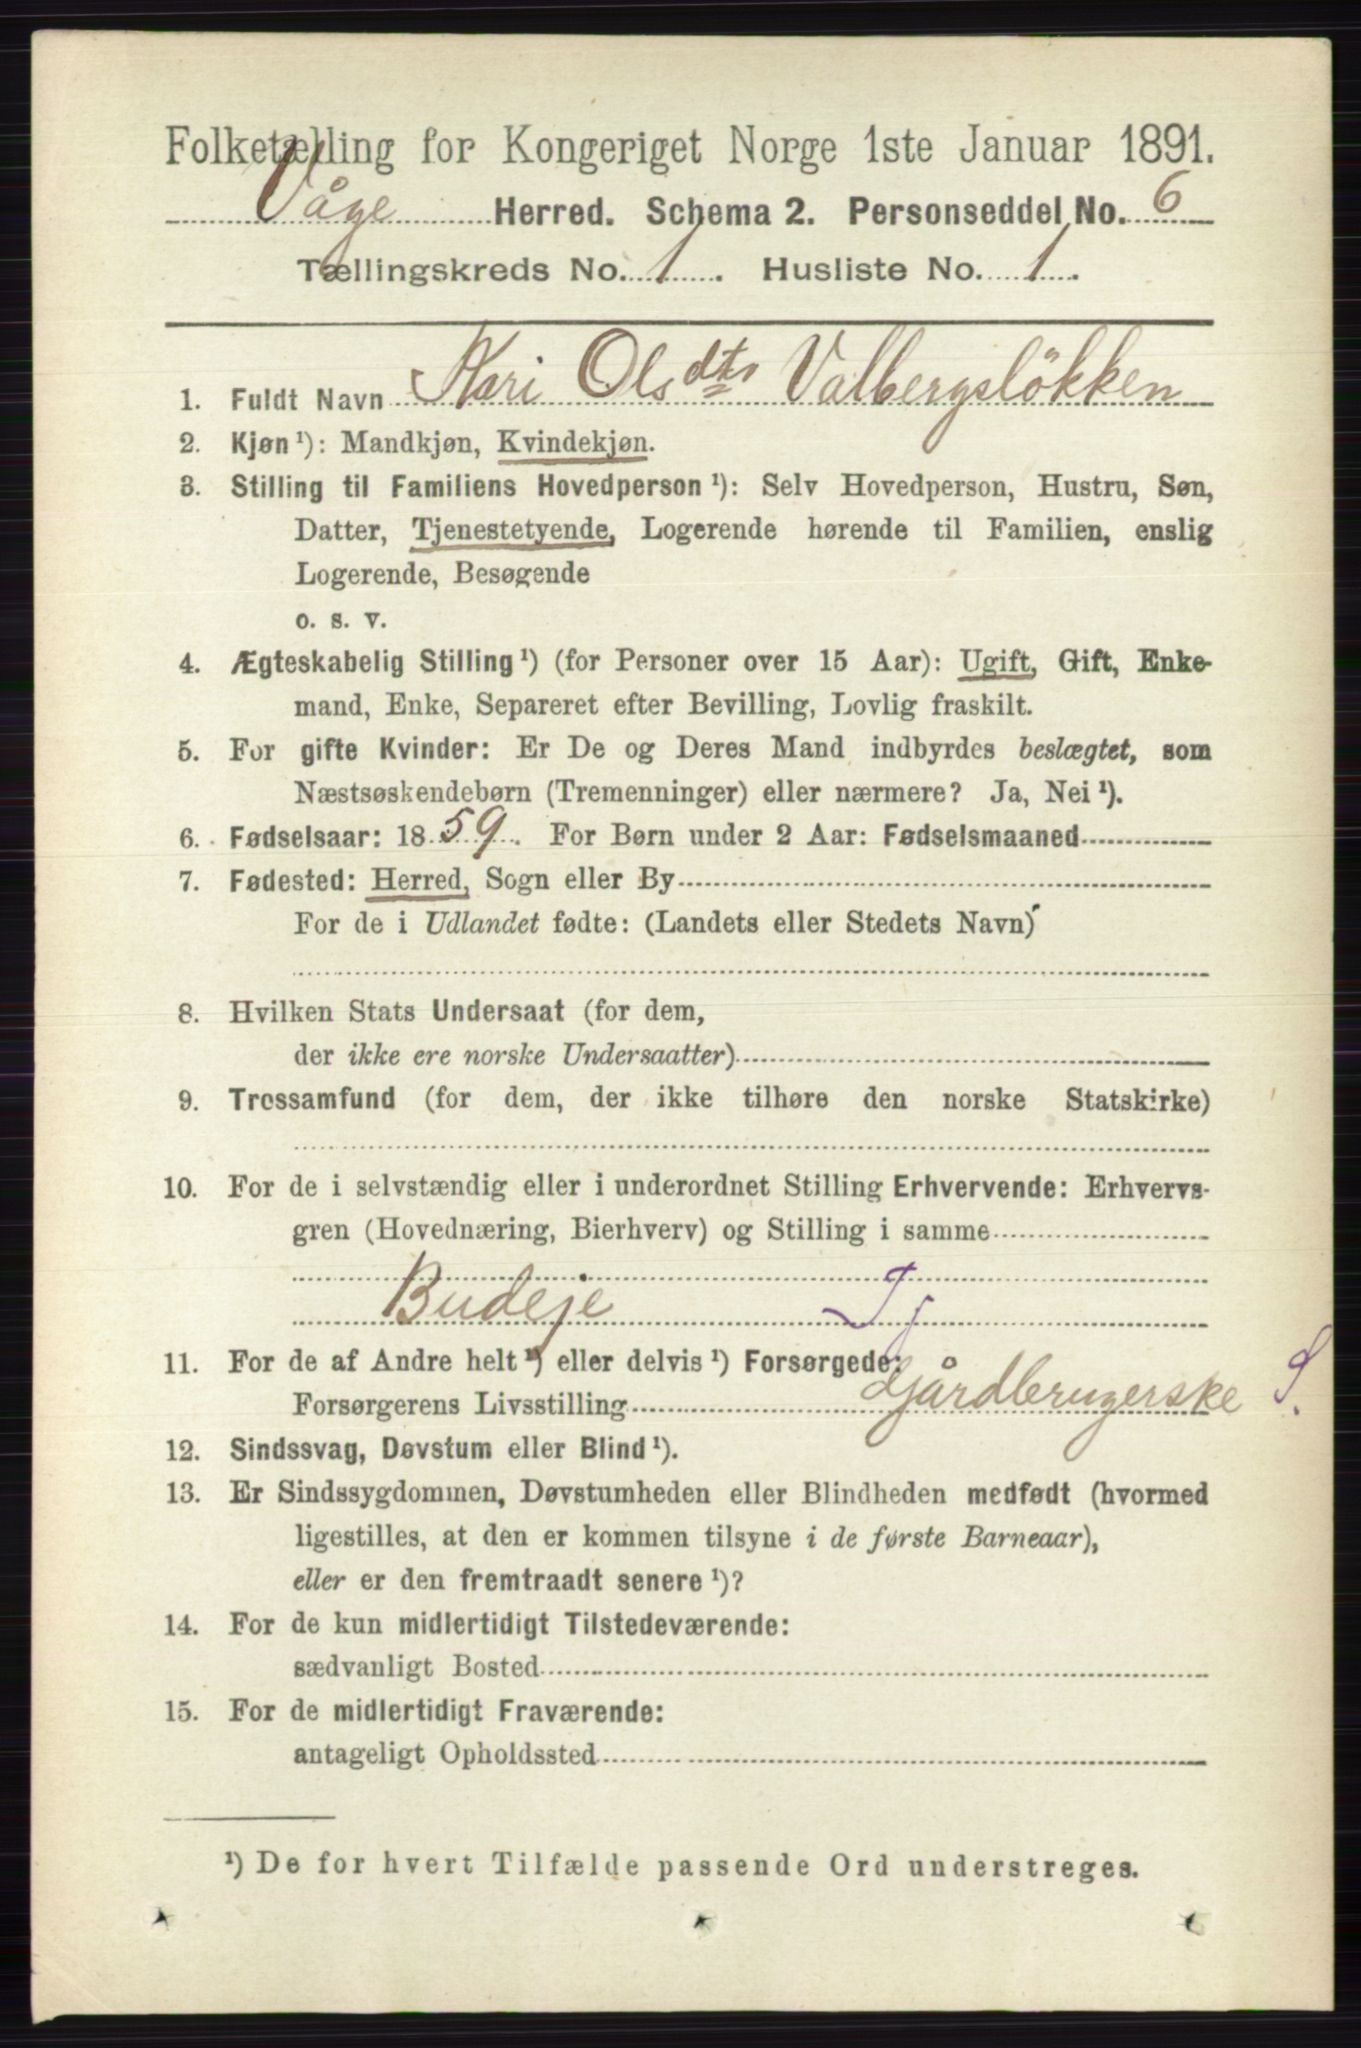 Folketælling for Kongeriget Norge 1ste Januar 1891.
Våge Herred. Schema 2. Personseddel No. 6
Tællingskreds No. 1. Husliste No. 1.
1. Fuldt Navn Kari Olsdtr Valbergsløkken
2. Kjøn ¹): Mandkjøn, Kvindekjøn.
3. Stilling til Familiens Hovedperson ¹): Selv Hovedperson, Hustru, Søn,
Datter, Tjenestetyende, Logerende hørende til Familien, enslig
Logerende, Besøgende
o. s. v.
4. Ægteskabelig Stilling ¹) (for Personer over 15 Aar): Ugift, Gift, Enke-
mand, Enke, Separeret efter Bevilling, Lovlig fraskilt.
5. For gifte Kvinder: Er De og Deres Mand indbyrdes beslægtet, som
Næstsøskendebørn (Tremenninger) eller nærmere? Ja, Nei ¹).
6. Fødselsaar: 1859. For Børn under 2 Aar: Fødselsmaaned
7. Fødested: Herred, Sogn eller By
For de i Udlandet fødte: (Landets eller Stedets Navn)
8. Hvilken Stats Undersaat (for dem,
der ikke ere norske Undersaatter)
9. Trossamfund (for dem, der ikke tilhøre den norske Statskirke)
10. For de i selvstændig eller i underordnet Stilling Erhvervende: Erhvervs-
gren (Hovednæring, Bierhverv) og Stilling i samme
Budeje Tj
11. For de af Andre helt ¹) eller delvis ¹) Forsørgede:
Forsørgerens Livsstilling Gårdbrugerske S.
12. Sindssvag, Døvstum eller Blind ¹).
13. Er Sindssygdommen, Døvstumheden eller Blindheden medfødt (hvormed
ligestilles, at den er kommen tilsyne i de første Barneaar),
eller er den fremtraadt senere ¹)?
14. For de kun midlertidigt Tilstedeværende:
sædvanligt Bosted
15. For de midlertidigt Fraværende:
antageligt Opholdssted
¹) De for hvert Tilfælde passende Ord understreges.